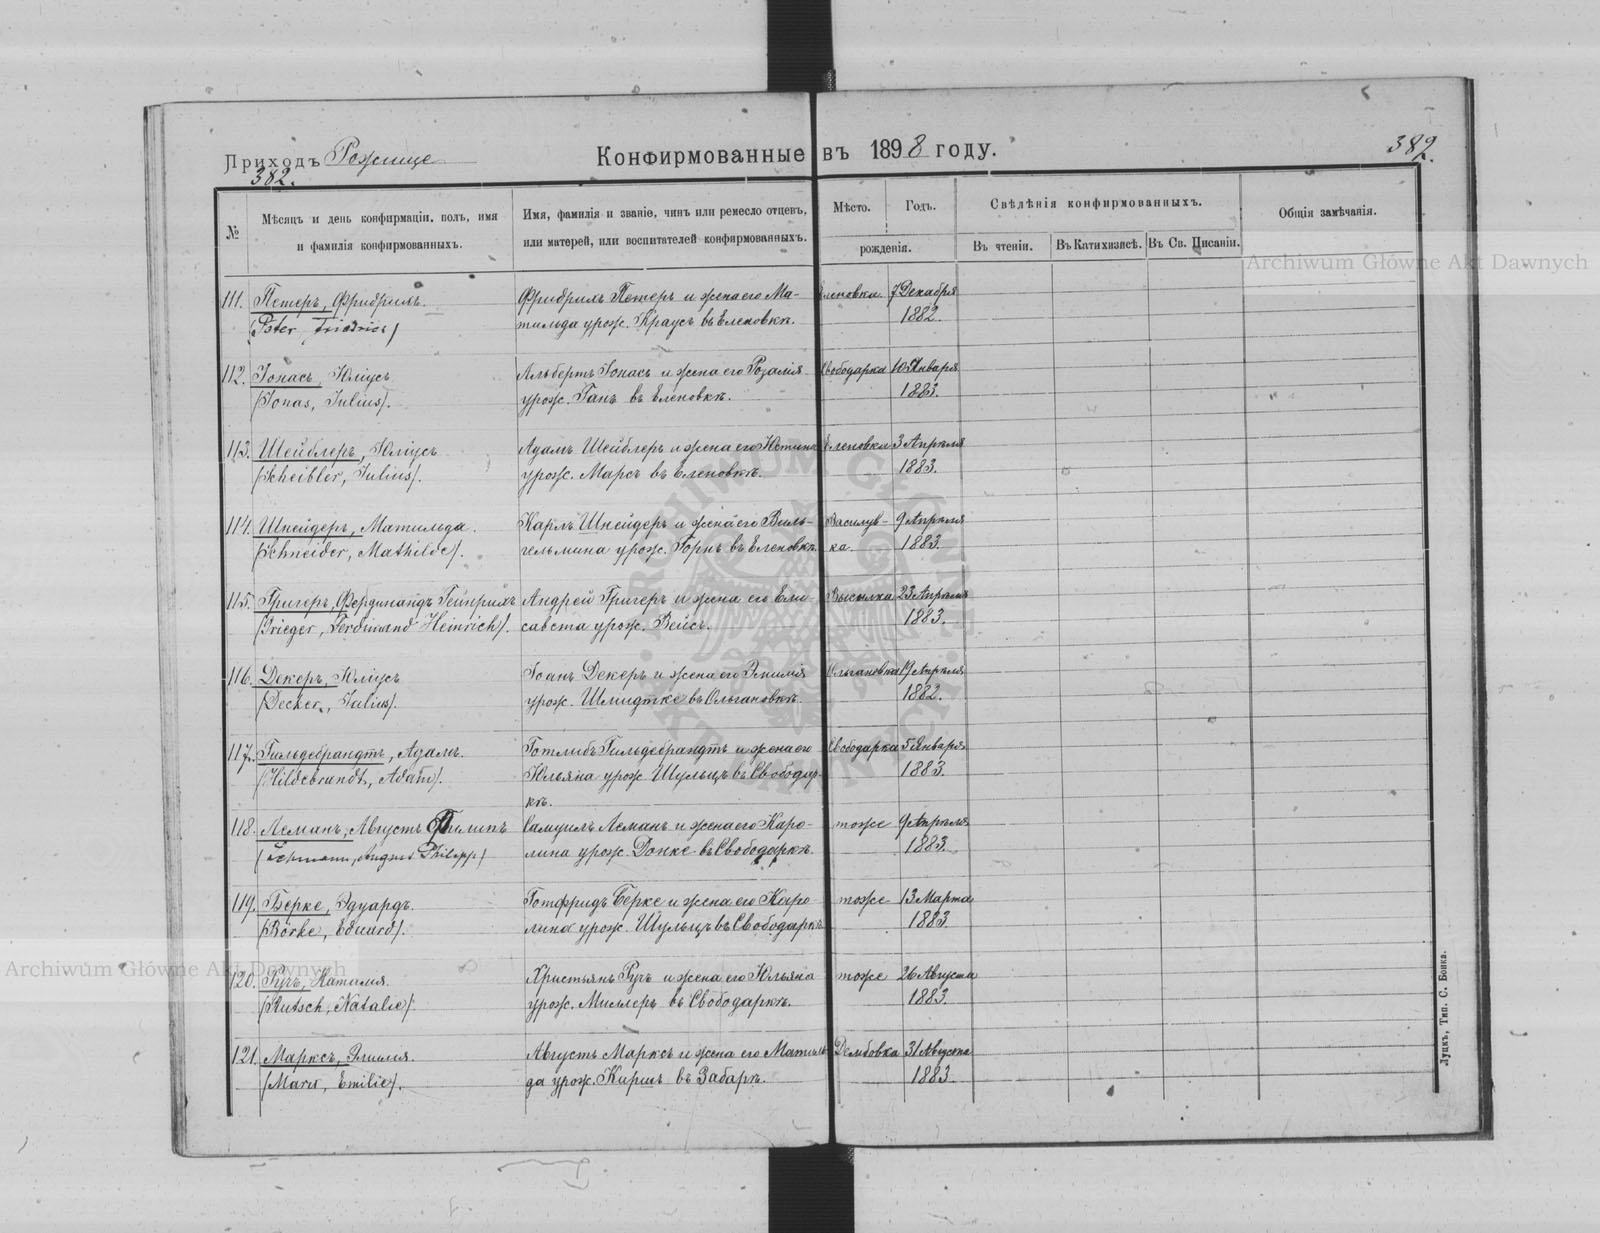 Приходъ Рожище
382.
Конфирмованные въ 1898 году.
382.
№
Мѣсяцъ и день конфирмаціи, полъ, имя
и фамилія конфирмованныхъ.
Имя, фамилія и званіе, чинъ или ремесло отцевъ,
или матерей, или воспитателей конфирмованныхъ.
Мѣсто. Годъ.
рожденія.
Свѣдѣнія конфирмованныхъ.
Въ чтеніи. Въ Катихизисѣ. Въ Св. Писаніи.
Общія замѣчанія.
111. Петеръ, Фридрихъ. Фридрихъ Петеръ и жена его Ма- Еленовка 7 Декабря
(Peter Friedrich) тильда урож. Краусъ въ Еленовкѣ. 1882.
112. Іонасъ, Юліусъ Альбертъ Іонасъ и жена его Розалія Свободарка 10 Января
(Jonas, Julius). урож. Ганъ въ Еленовкѣ. 1883.
113. Шейблеръ, Юліусъ Адамъ Шейблеръ и жена его Юстина Еленовка 3 Апрѣля
(Scheibler, Julius). урож. Марсъ въ Еленовкѣ. 1883.
114. Шнейдеръ, Матильда. Карлъ Шнейдеръ и жена его Виль- Василув- 9 Апрѣля
(Schneider, Mathilde). гельмина урож. Горнъ въ Еленовкѣ. ка. 1883.
115. Григеръ, Фердинандъ Гейнрихъ Андрей Григеръ и жена его Ели- Высылка 23 Апрѣля
(Krieger, Ferdinand Heinrich). савета урож. Вейсъ. 1883.
116. Декеръ, Юліусъ Іоанъ Декеръ и жена его Эмилія Ольгановка 19 Апрѣля
(Decker, Julius). урож. Шмидтке въ Ольгановкѣ. 1882.
117. Гильдебрандтъ, Адамъ. Готлибъ Гильдебрандтъ и жена его Свободарка 5 Января
(Hildebrandt, Adam). Юльяна урож. Шульцъ въ Свободар- 1883.
кѣ.
118. Леманъ, Августъ Филипъ Самуилъ Леманъ и жена его Каро- тоже 9 Апрѣля
(Lehmann, August Philipp) лина урож. Донке въ Свободаркѣ. 1883.
119. Берке, Эдуардъ. Готфридъ Берке и жена его Каро- тоже 13 Марта
(Börke, Eduard). лина урож. Шульцъ въ Свободаркѣ 1883.
120. Ручъ, Наталія. Христьянъ Ручъ и жена его Юльяна тоже 26 Августа
(Rutsch, Natalie). урож. Миллеръ въ Свободаркѣ. 1883.
121. Марксъ, Эмилія. Августъ Марксъ и жена его Матиль- Дембовка 31 Августа
(Marx, Emilie). да урож. Киршъ въ Забарѣ. 1883.
Луцкъ, Тип. С. Бонка.
Archiwum Główne Akt Dawnych
Archiwum Główne Akt Dawnych